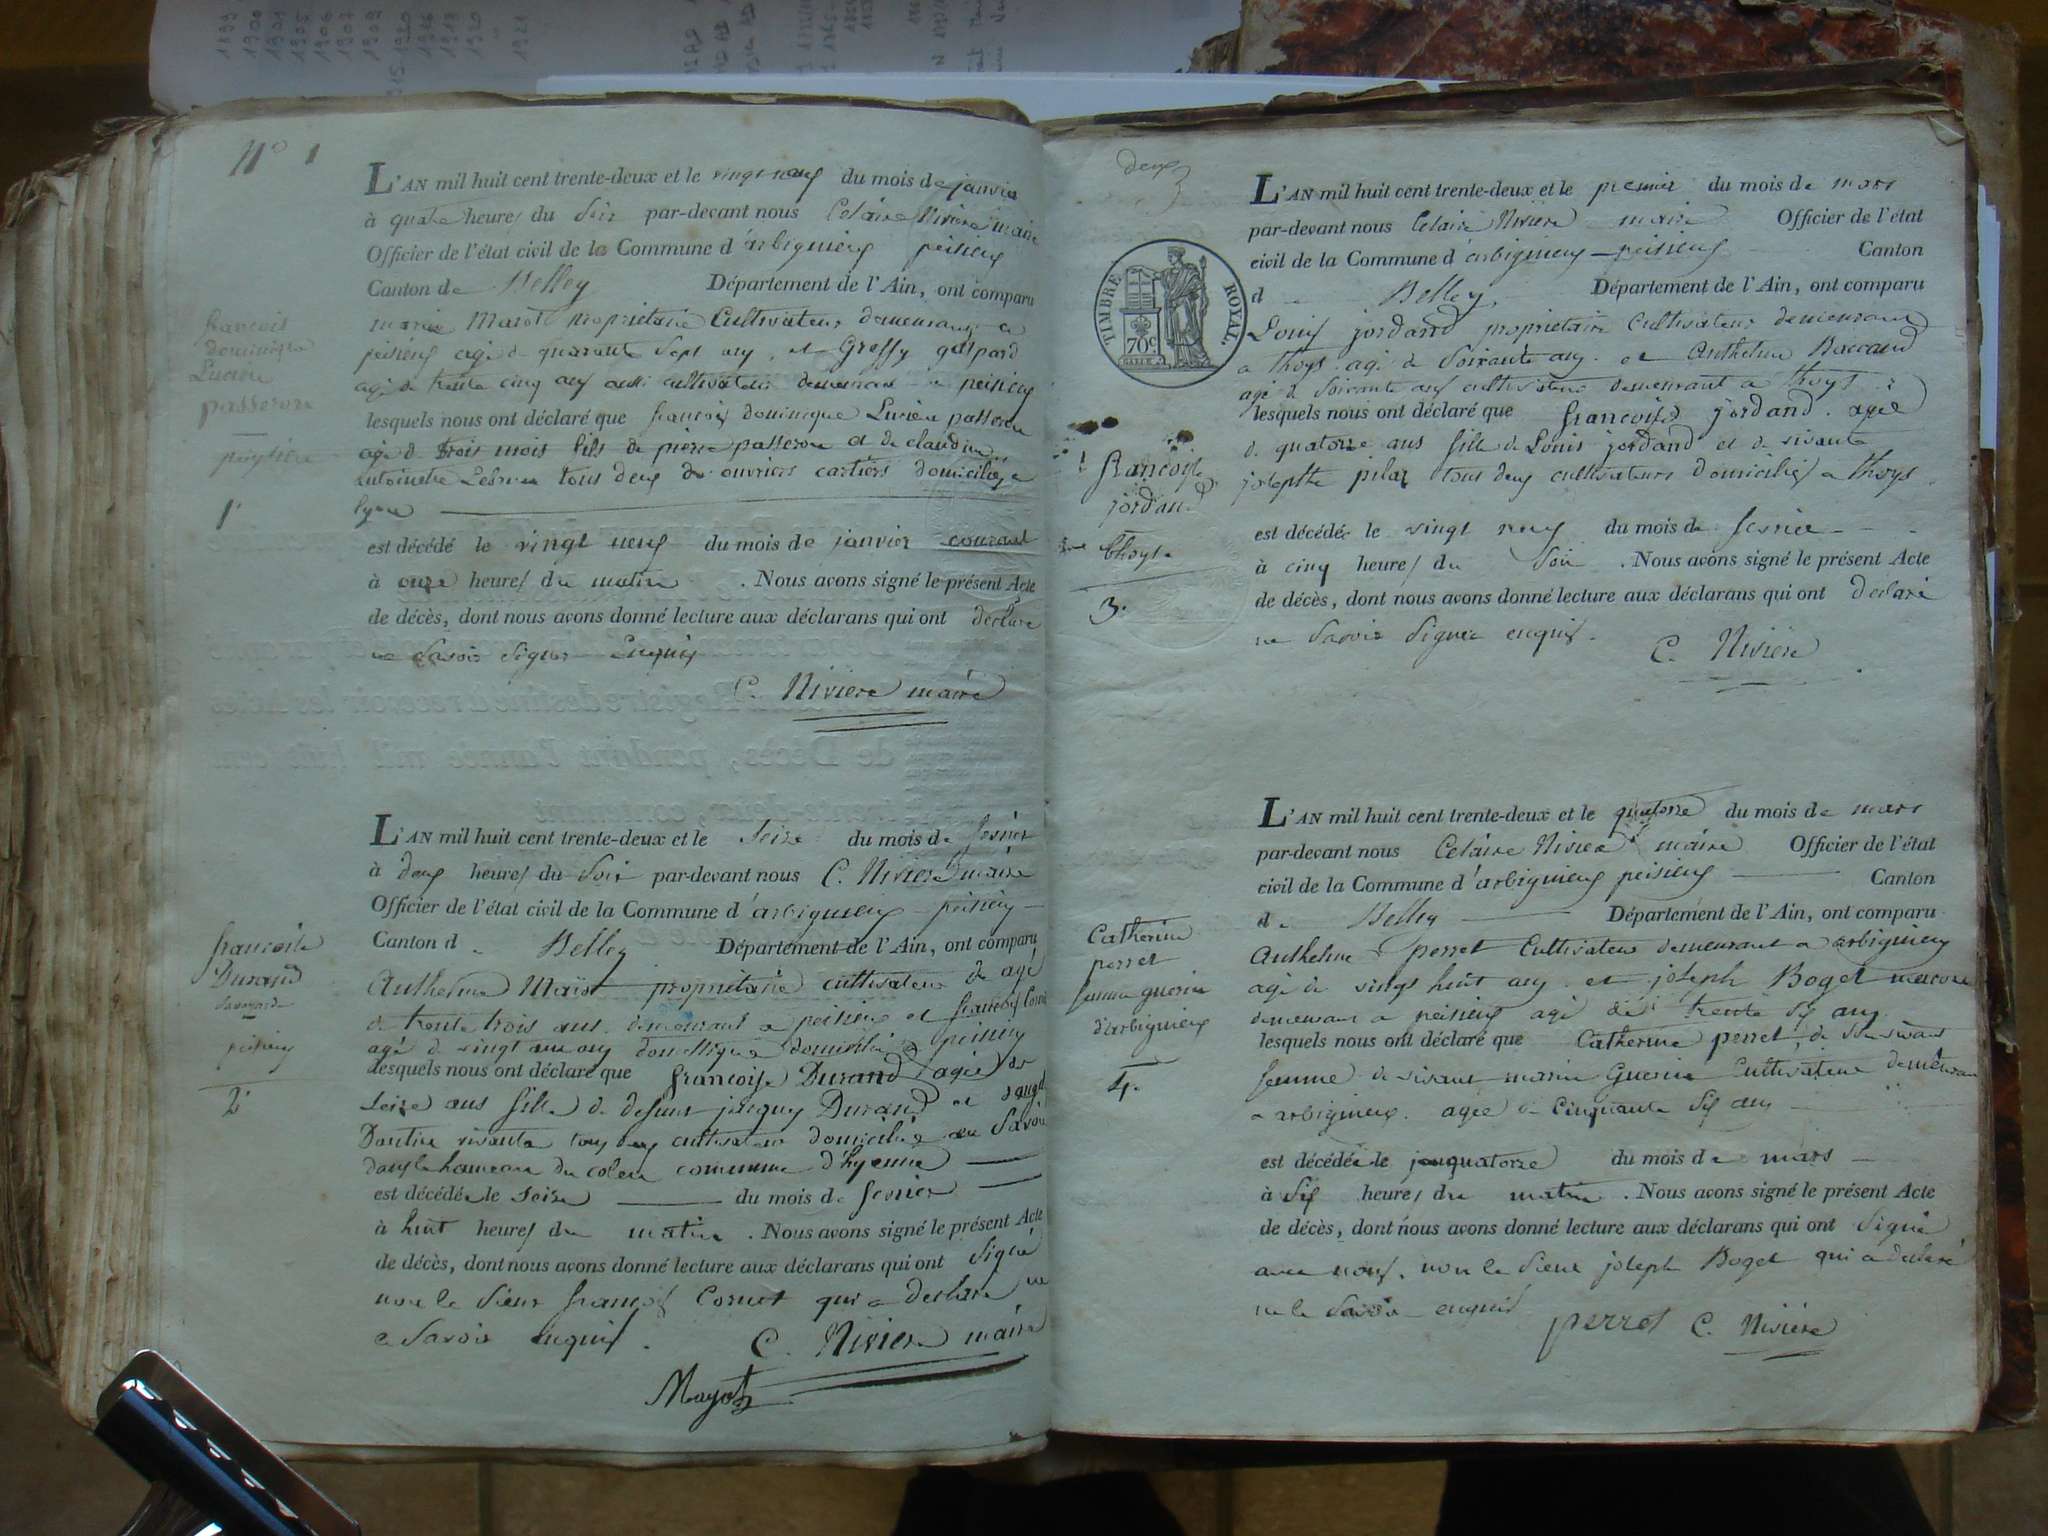 1899
1900
1906
1907
1920
1921
N° 1
L'AN mil huit cent trente-deux et le vingt neuf du mois de janvier
à quatre heures du Soir par-devant nous Celaire Niviere maire
Officier de l'état civil de la Commune d'arbignieux peisieux
Canton de Belley Département de l'Ain, ont comparu
propriétaire Cultivateur demeurant a
peisieux agé de quarante Sept ans, et Greffy gaspard
agé de trente cinq ans aussi cultivateur demeurant a peisieux
lesquels nous ont déclaré que francois dominique Lucien passeron
agé de trois mois fils de pierre passeron et de claudine
antoinette tous deux ouvriers cartiers domicilies a
lyon
est décédé le vingt neuf du mois de janvier courant
à onze heures du matin . Nous avons signé le présent Acte
de décès, dont nous avons donné lecture aux déclarans qui ont déclaré
ne Savoir Signer Enquis
C. Niviere maire
francois
dominique
Lucien
passeron
peisieux
1
L'AN mil huit cent trente-deux et le Seize du mois de fevrier
à deux heures du Soir par-devant nous C. Niviere maire
Officier de l'état civil de la Commune d'arbignieux - peisieux
Canton d Belley Département de l'Ain, ont comparu
Anthelme propriétaire cultivateur agé
de trente trois ans demeurant a peisieux et francois Cornet
agé de vingt un ans domestique domicilié a peisieux
lesquels nous ont déclaré que francoise Durand agée de
Seize ans fille de defunt Durand et
vivante tous deux cultivateur domicilié en Savoie
dans le hameau du commune d'hyenne
est décédée le Seize du mois de fevrier
à huit heures du matin . Nous avons signé le présent Acte
de décès, dont nous avons donné lecture aux déclarans qui ont Signé
non le Sieur francois Cornet qui a declaré ne
le Savoir enquis. C. Niviere maire
Mayot
francoise
Durand
Savoyarde
peisieux
2
deux
TIMBRE ROYAL
70c
L'AN mil huit cent trente-deux et le premier du mois de mars
par-devant nous Celaire Niviere maire Officier de l'état
civil de la Commune d'arbignieux - peisieux Canton
d Belley Département de l'Ain, ont comparu
Louis jordand propriétaire Cultivateur demeurant
a thoys agé de Soixante ans et Anthelme
agé de Soixante ans cultivateur demeurant a thoys
lesquels nous ont déclaré que francoise jordand agée
de quatorze ans fille de Louis jordand et de vivante
josephte tous deux cultivateurs domiciliés a thoys
est décédée le vingt neuf du mois de fevrier
à cinq heures du Soir . Nous avons signé le présent Acte
de décès, dont nous avons donné lecture aux déclarans qui ont déclaré
ne Savoir Signer enquis.
C. Niviere
francoise
jordand
thoys
3.
L'AN mil huit cent trente-deux et le quatorze du mois de mars
par-devant nous Celaire Niviere maire Officier de l'état
civil de la Commune d'arbignieux peisieux Canton
d Belley Département de l'Ain, ont comparu
Anthelme perret Cultivateur demeurant a arbignieux
agé de vingt huit ans et joseph Boget
demeurant a peisieux agé de trente six ans
lesquels nous ont déclaré que Catherine perret, de Son vivant
femme de vivant marin Guerin Cultivateur demeurant
a arbignieux. agée de Cinquante Six ans
est décédée le quatorze du mois de mars
à Six heures du matin . Nous avons signé le présent Acte
de décès, dont nous avons donné lecture aux déclarans qui ont Signé
avec nous. non le Sieur joseph Boget qui a declaré
ne le Savoir enquis
perret C. Niviere
Catherine
perret
femme guerin
d'arbignieux
4.